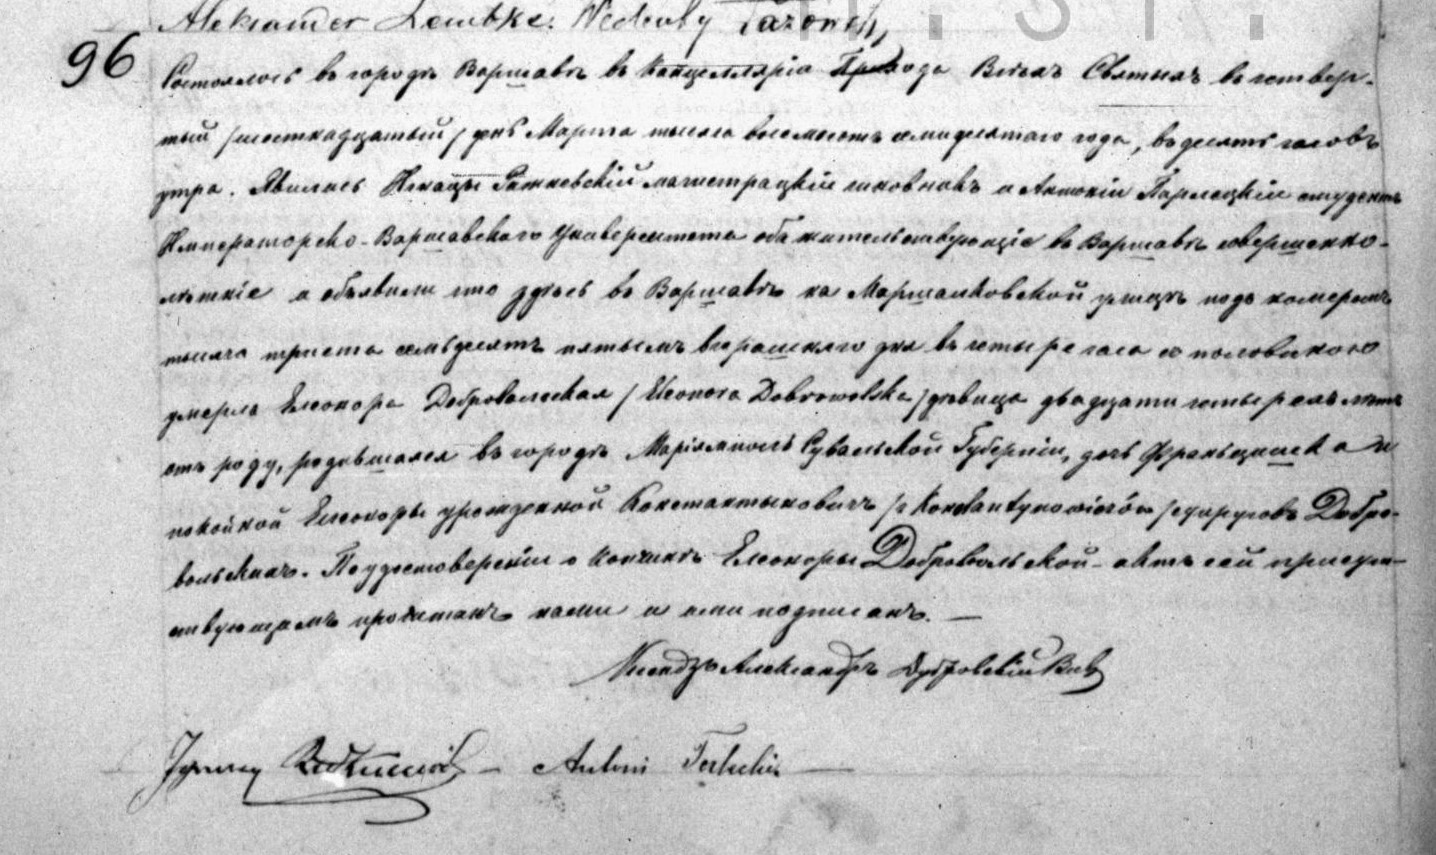 Aleksander Lembke.
96
Состоялось въ городѣ Варшавѣ въ Канцелляріи Прихода Всѣхъ Святыхъ въ четвер-
тый /шестнадцатый/ день Марта тысяча восемьсотъ семидесятаго года, въ десять часовъ
утра. Явились Игнацы магистрацкій чиновникъ и Антоній студентъ
Императорско-Варшавскаго Университета оба жительствующіе въ Варшавѣ совершенно-
лѣтніе и объявили что здѣсь въ Варшавѣ на Маршалковской улицѣ подъ номеромъ
тысяча триста семьдесятъ пятымъ вчерашняго дня въ четыре часа съ половиною
умерла Елеонора Добровольская /Eleonora Dobrowolska/ дѣвица двадцати четырехъ лѣтъ
отъ роду, родившаяся въ городѣ Маріямполь Сувалкской Губерніи, дочь Францишка и
покойной Елеоноры урожденной Константыновичъ /z Konstantynowiczów/ супруговъ Добро-
вольскихъ. По удостовѣреніи о кончинѣ Елеоноры Добровольской актъ сей присут-
ствующимъ прочитанъ нами и ими подписанъ. —
Ксендзъ Александръ Дубровскій Вик
Ignacy — Antoni —